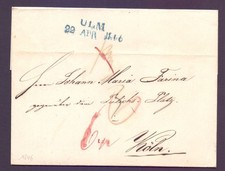 ULM
22 APR 1846
Herrn Johann Maria Farina
gegenüber dem Jülichs Platz
Köln